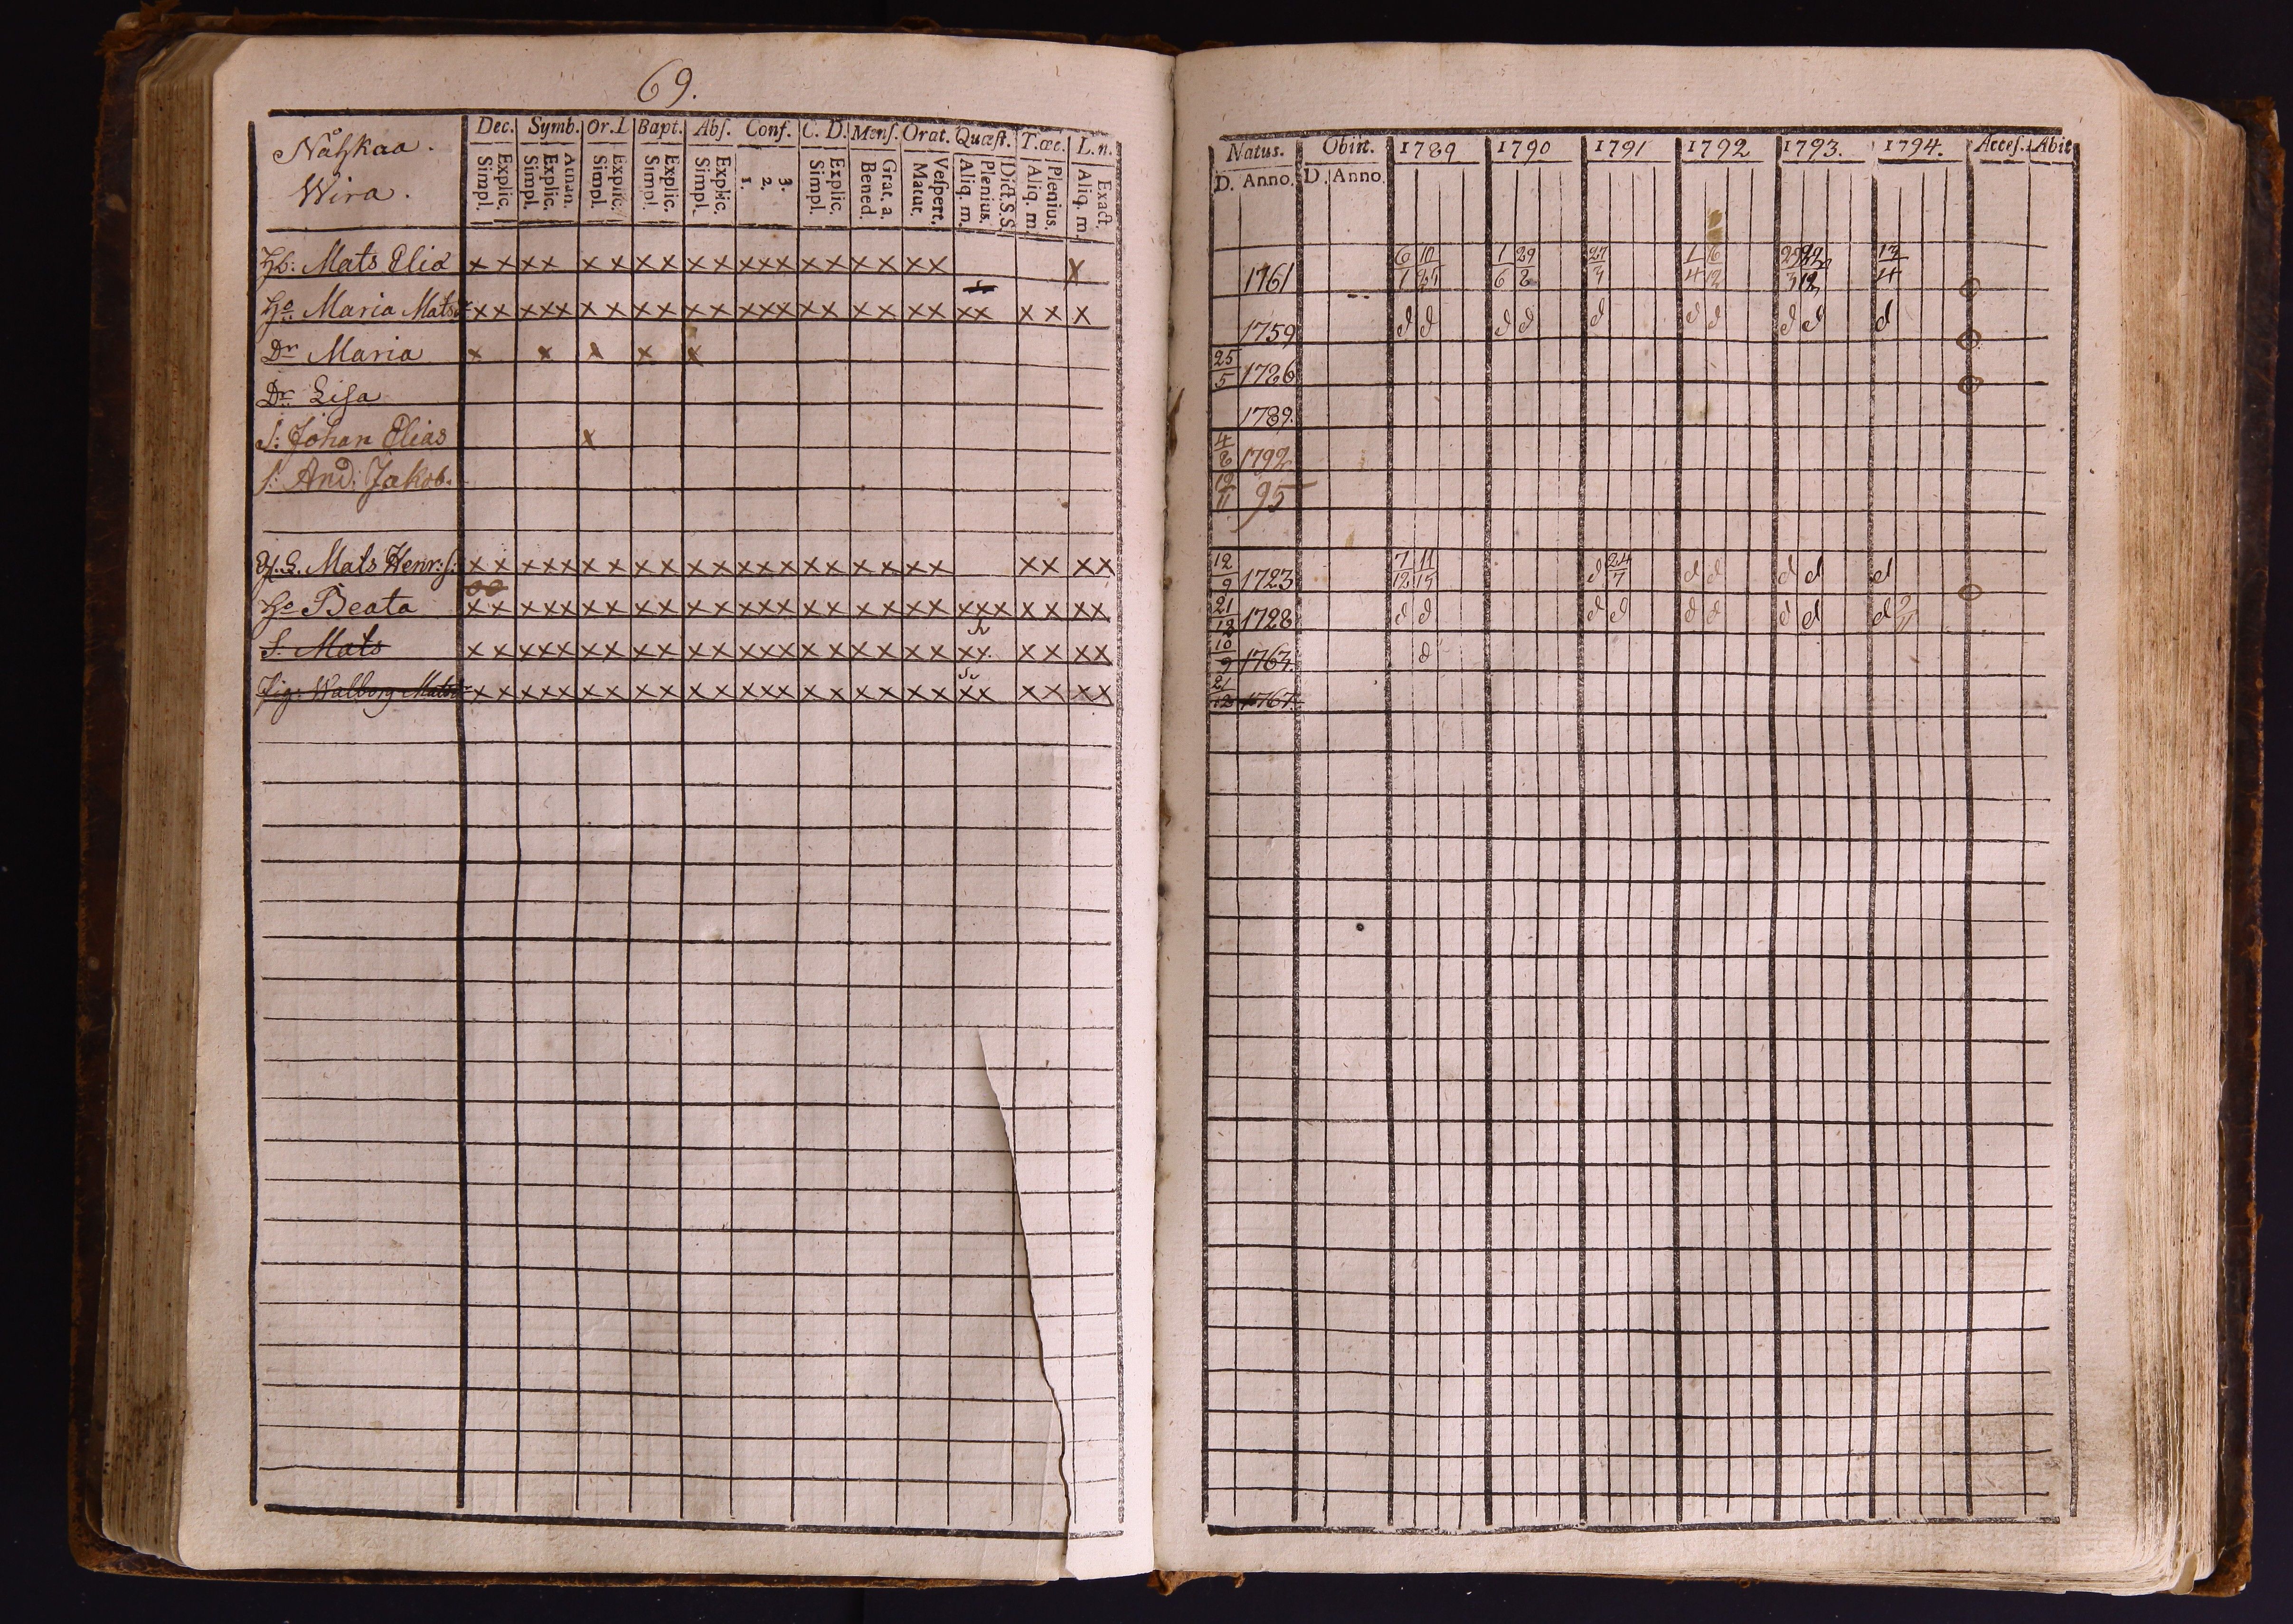 69.
Nåhkaa.
Wira.
Dec. Symb. Or. I. Bapt. Abſ. Conf. C. D. Menſ. Orat. Quæſt. T. œc. L. n.
Simpl. Explic. Simpl. Explic. Athan. Simpl. Explic. Simpl. Explic. Simpl. Explic. 1. 2. 3. Simpl. Explic. Bened. Grat. a. Matut. Veſpert. Aliq. m. Plenius. Dict. S. S. Aliq. m. Plenius. Aliq. m. Exact.
Hb: Mats Eliæ x x x x x x x x x x x x x x x x x x x x
Ho Maria Matsdr x x x x x x x x x x x x x x x x x x x x x x x x x
Dr Maria x x x x x
Dr Lisa
S: Johan Elias x
S: And: Jakob.
Mats Henr:s: x x x x x x x x x x x x x x x x x x x x x x x x
Ho Beata x x x x x x x x x x x x x x x x x x x x x x x x x x x
S: Mats x x x x x x x x x x x x x x x x x x x x x x x x x x
Pig: Walborg Matsdr x x x x x x x x x x x x x x x x x x x x x x x x x x
Natus. Obiit. 1789 1790 1791 1792 1793. 1794. Acceſ. Abiit
D. Anno. D. Anno.
1761 6/1 1/6 29/8 27/3 1/4 13/4
1759 d d d d d d d d d d
25/5 1786
1789.
4/8 1792
12/11 95
12/9 1723 7/12 11/15 d 24/7 d d d d d
21/12 1728 d d d d d d d d d
10/9 1764. d
21/12 1767.